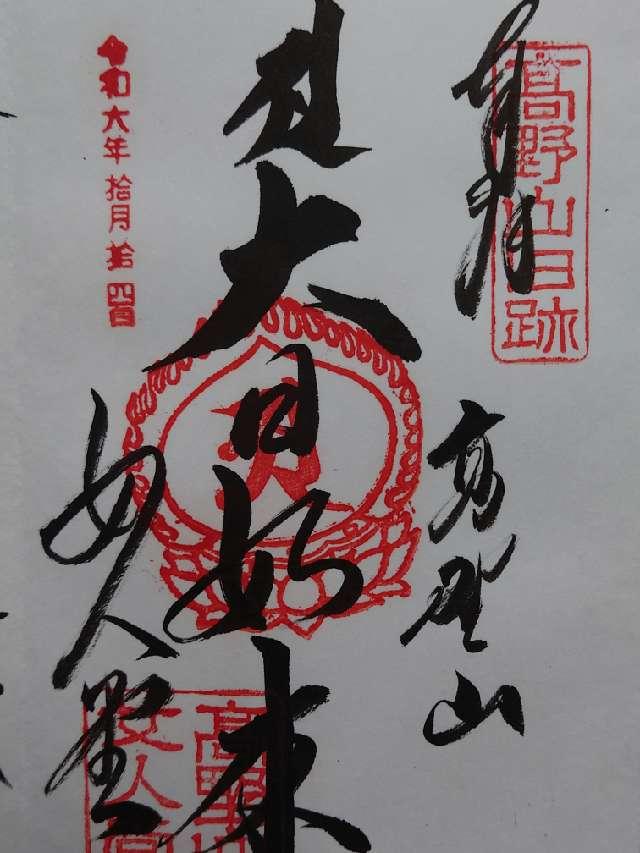 奉拝
高野山旧跡
高野山
大日如来
女人堂
高野山
女人堂
令和六年拾月拾四日